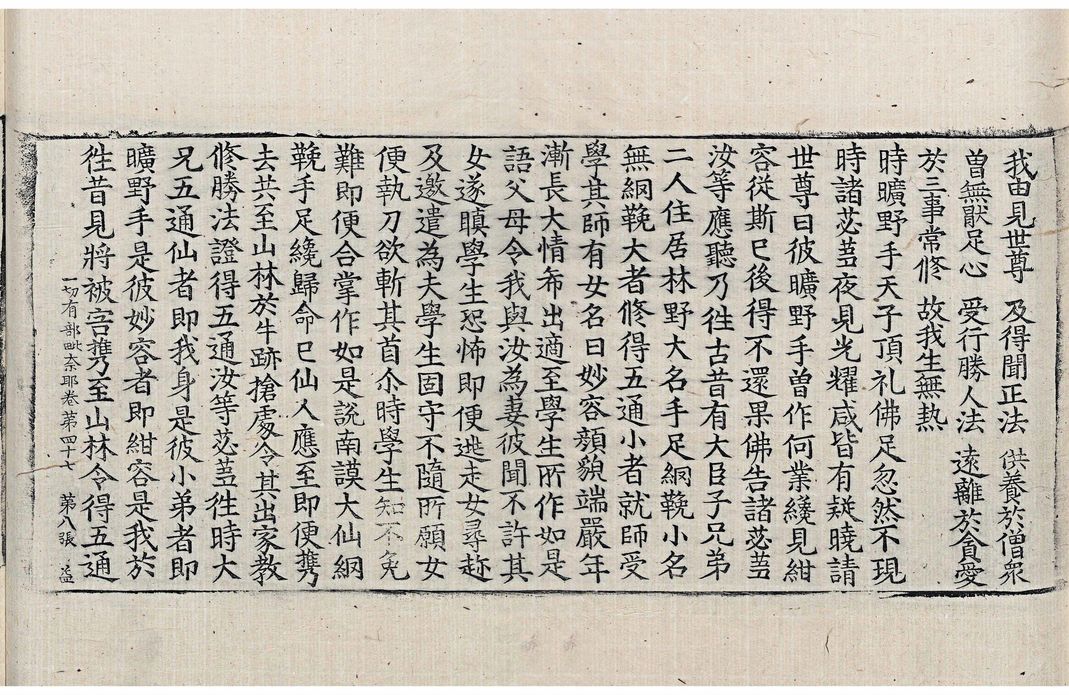 我由見世尊　及得聞正法　供養於僧衆
曽無猒足心　受行勝人法　遠離於貪愛
於三事常修　故我生無熱
時曠野手天子頂礼佛足忽然不現
時諸苾芻夜見光耀咸皆有疑曉請
世尊曰彼曠野手曽作何業纔見紺
容從斯已後得不還果佛告諸苾芻
汝等應聽乃徃古昔有大臣子兄弟
二人住居林野大名手足網鞔小名
無網鞔大者修得五通小者就師受
學其師有女名曰妙容顔貌端嚴年
漸長大情布出適至學生所作如是
語父母令我與汝為妻彼聞不許其
女遂瞋學生恐怖即便逃走女尋趂
及邀遣為夫學生固守不隨所願女
便執刀欲斬其首尒時學生知不免
難即便合掌作如是說南謨大仙網
鞔手足纔歸命已仙人應至即便攜
去共至山林於牛跡搶處令其出家教
修勝法證得五通汝等苾芻徃時大
兄五通仙者即我身是彼小弟者即
曠野手是彼妙容者即紺容是我於
徃昔見將被害攜至山林令得五通
一切有部毗奈耶卷第四十七　第八張　益